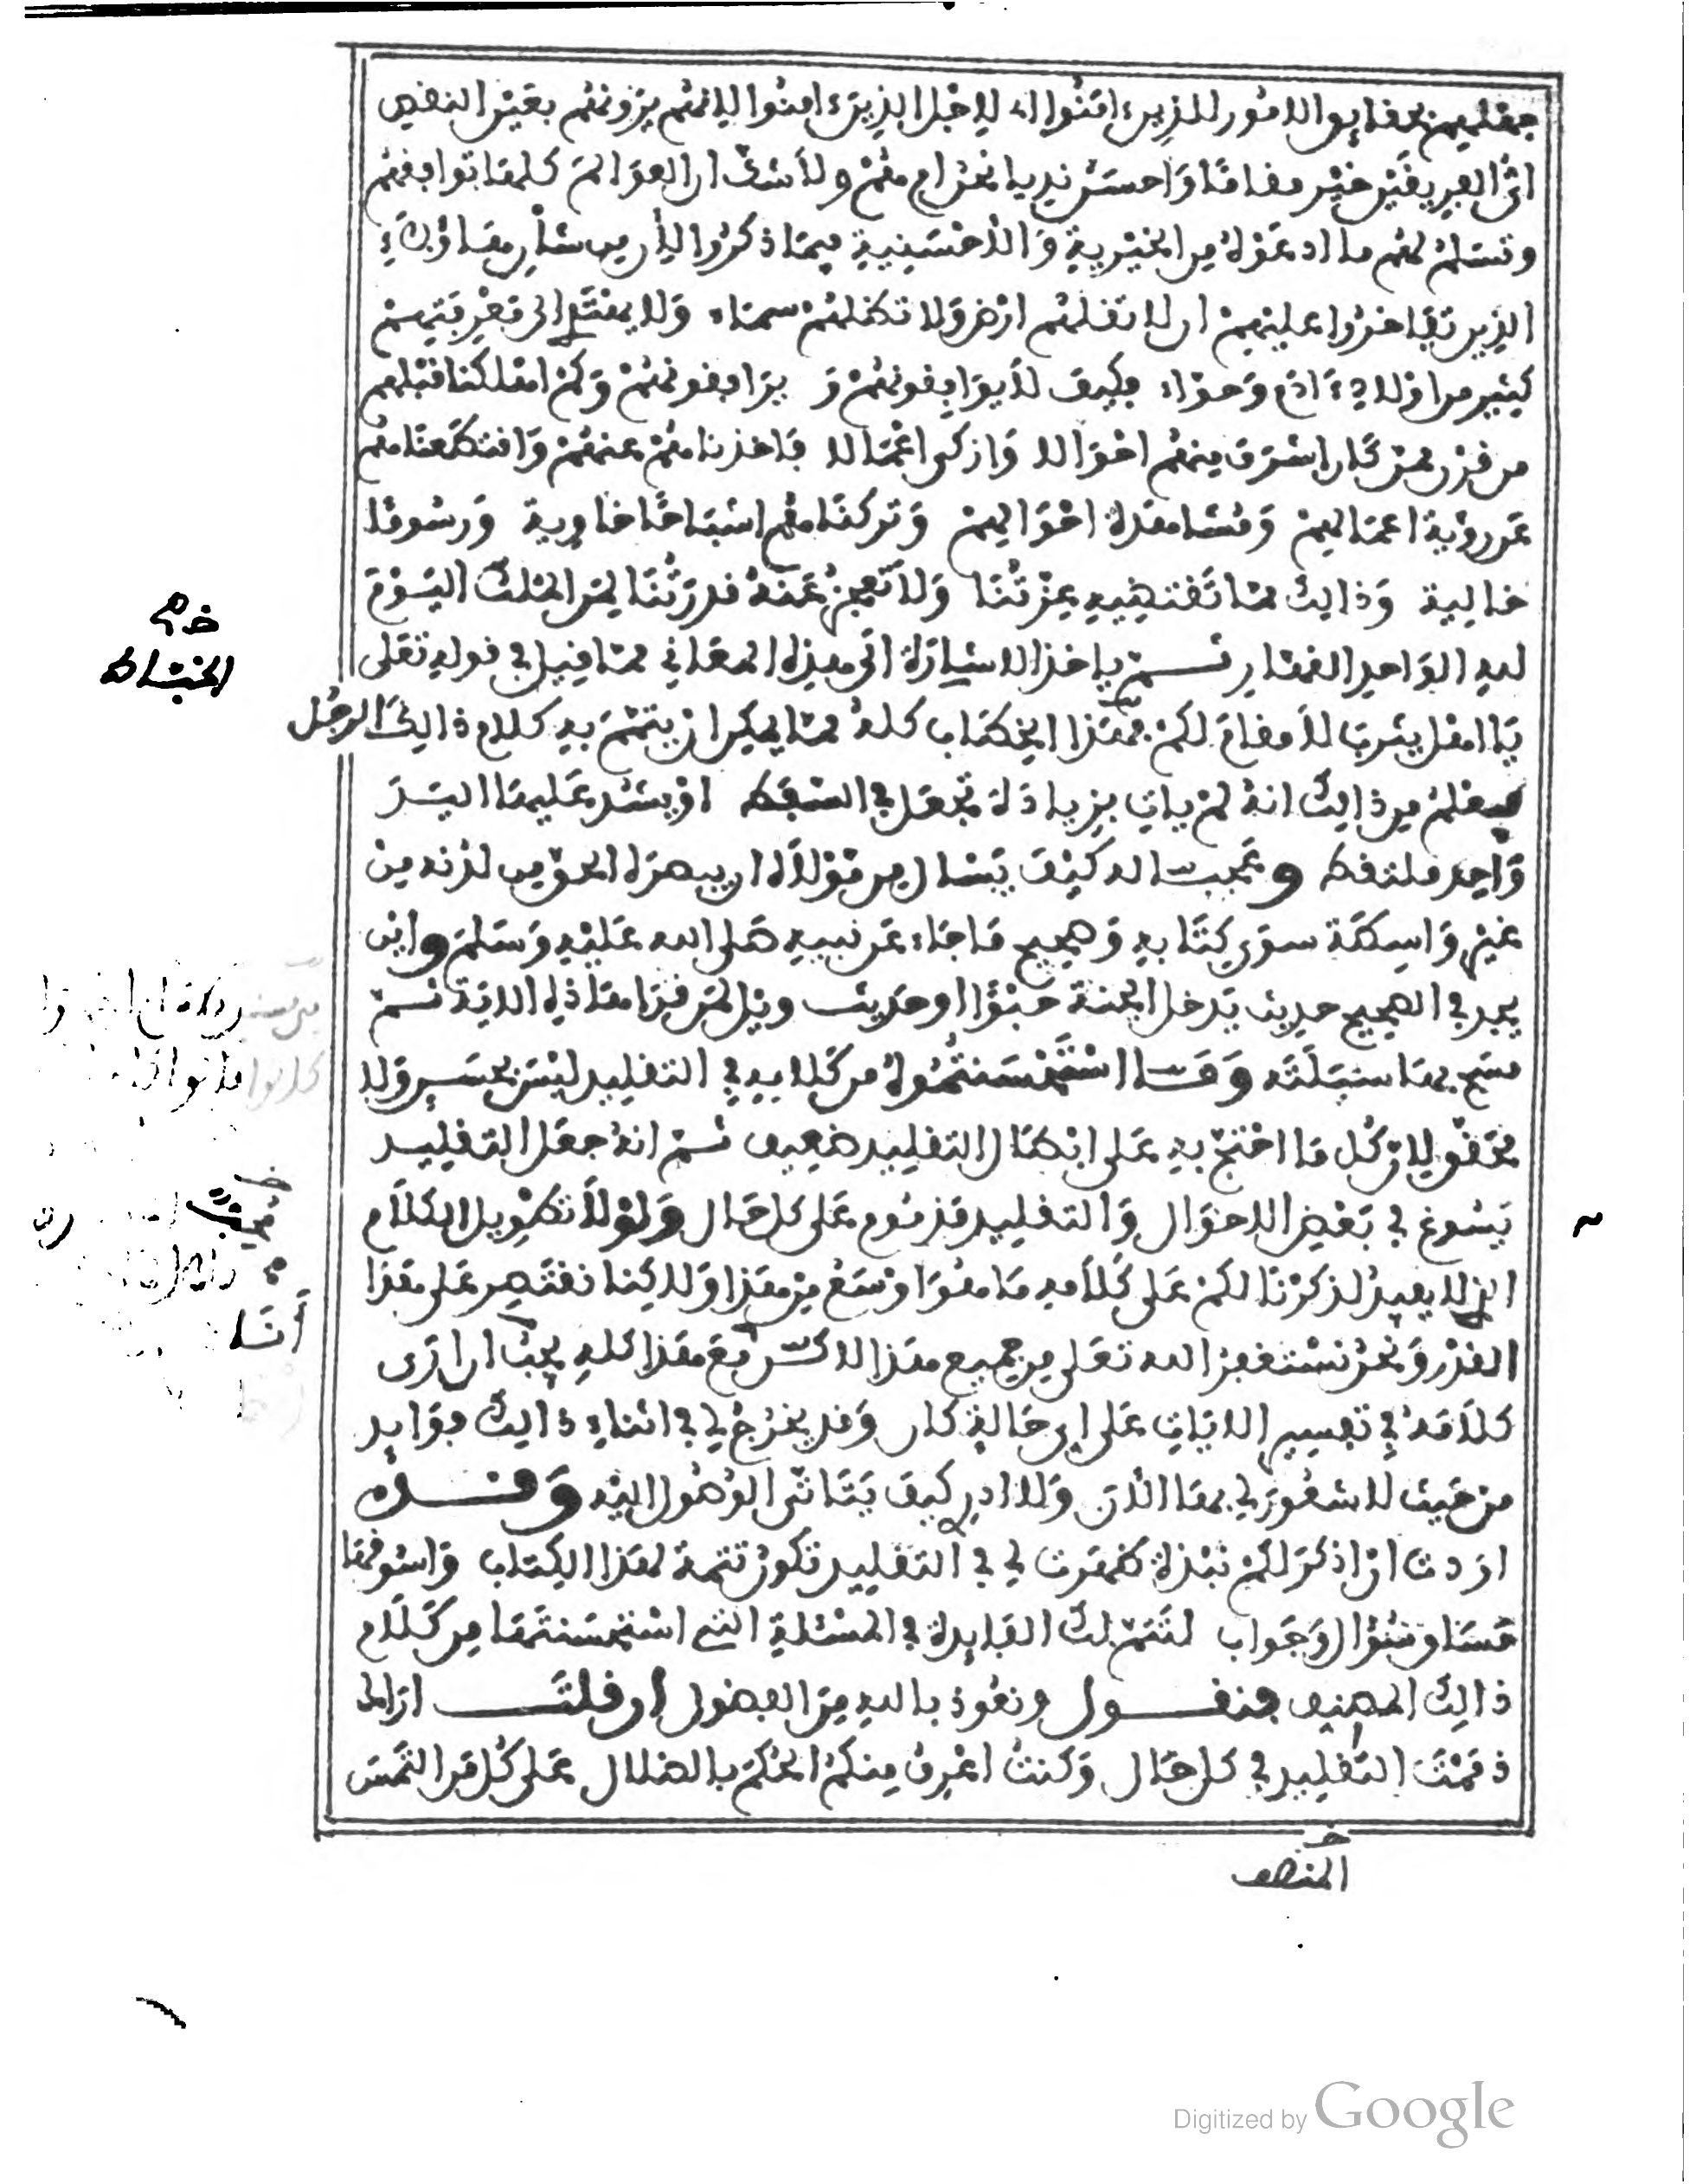 جهلهم بحقايق الامور للذين ءامنوا اي لاجل الذين ءامنوا لانهم يرونهم بعين النقص
اي الفريقين خير مقاما واحسن نديا نحن ام هم ولا شك ان العوالم كلها توافقهم
وتسلم لهم ما ادعوه من الخيرية والاحسنية فيما ذكروا لان من شان هاؤلاء
الذين تفاخروا عليهم ان لا تقلهم ارض ولا تظلهم سماء ولا يهتدي الى معرفتهم
كثير من اولاد ءادم وحواء فكيف لا يوافقونهم و يرافقونهم وكم اهلكنا قبلهم
من قرن ممن كان اشرف منهم احوالا وازكى اعمالا فاخذناهم عنهم واقتطعناهم
عن رؤية اعمالهم ومشاهدة احوالهم وتركناهم اشباحا خاوية ورسوما
خالية وذالك مما تقتضيه عزتنا ولا تعجز عنه قدرتنا لمن الملك اليوم
لله الواحد القهار ثم ياخذ الاشارة الى هذه المعاني مما قيل في قوله تعلى
يا اهل يثرب لا مقام لكم فهذا الخطاب كله مما يمكن ان يتهم به كلام ذالك الرجل
فيعلم من ذالك انه لم يات بزيادة تجعل في السفط او يشد عليها اليد
واحد ملتقط وعجبت له كيف يسال من مولاه ان يبصره الحق من لدنه من
غير واسطة سوى كتابه وصحيح ما جاء عن نبيه صلى الله عليه وسلم واين
يجد في الصحيح حديث يدخل الجنة حبوا او حديث ويل لمن قرا هاذه الاية ثم
مسح بها سبلته وما استحسنتموه من كلامه في التقليد ليس بحسن ولا
محقق لان كل ما احتج به على ابطال التقليد ضعيف ثم انه جعل التقليد
يسوغ في بعض الاحوال والتقليد مذموم على كل حال ولولا تطويل الكلام
الذي لا يفيد لذكرنا لكم على كلامه ما هو اوسع من هذا ولاكنا نقتصر على هذا
القدر ونحن نستغفر الله تعلى من جميع هذا لاكن مع هذا كله يجب ان ارى
كلامه في تفسير الايات على اي حالة كان وقد يخرج لي في اثناء ذالك فوايد
من حيث لا شعور لي بها الان ولا ادري كيف يتاتى الوصول اليه وقد
اردت ان اذكر لكم نبذة ظهرت لي في التقليد تكون تتمة لهذا الكتاب واسوقها
مساق سؤال وجواب لتتم لك الفايدة في المسئلة التي استحسنتها من كلام
ذالك المصنف فنقول ونعوذ بالله من الفضول ان قلت اراك
ذممت التقليد في كل حال وكنت اعرف منكم الحكم بالضلال على كل من التمس
خ
الخطاب
المنصف
Digitized by Google